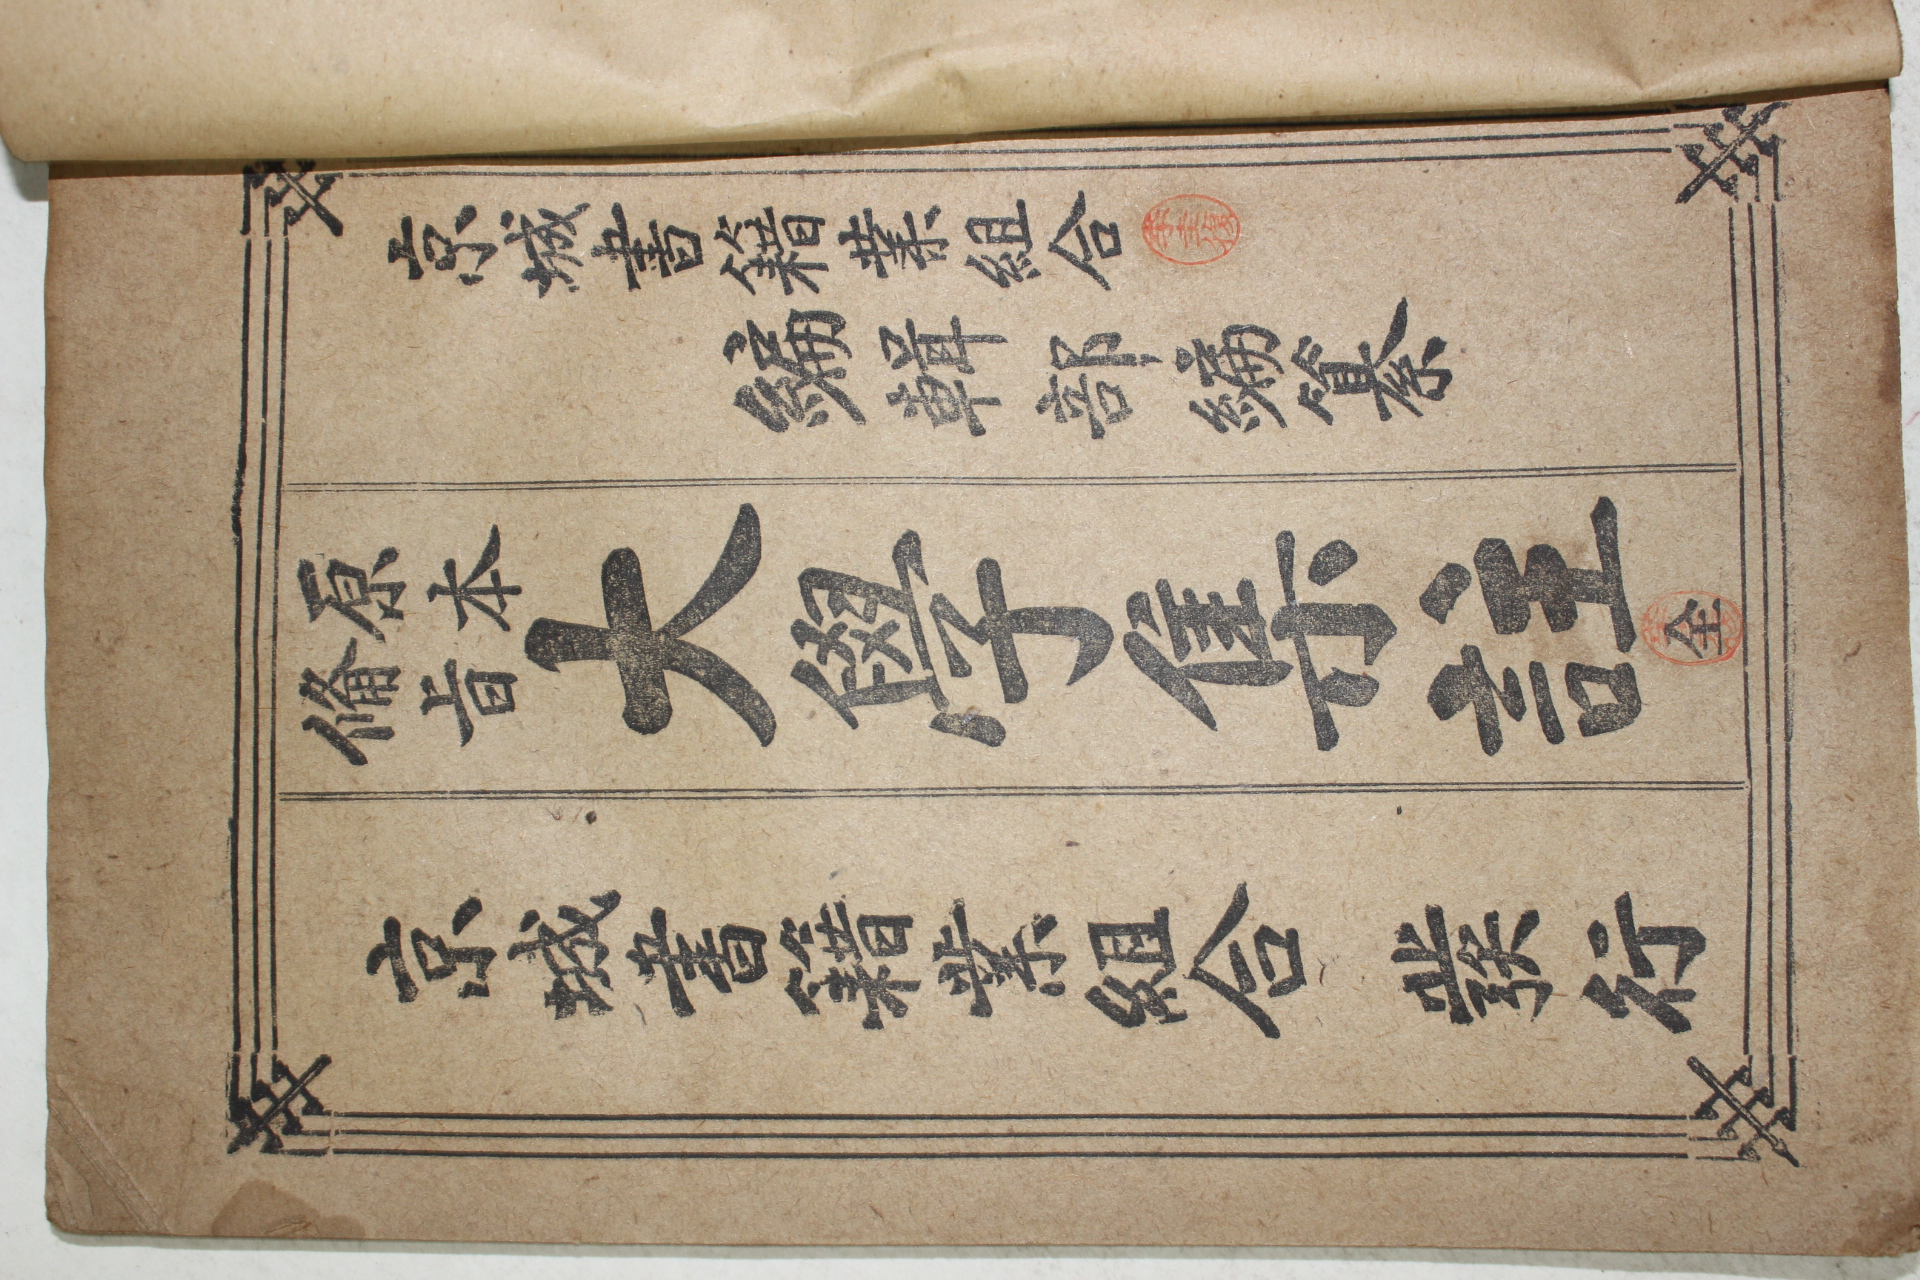 京城書籍業組合
編輯部編纂
原本
備旨
大學集註 全
京城書籍業組合 發行